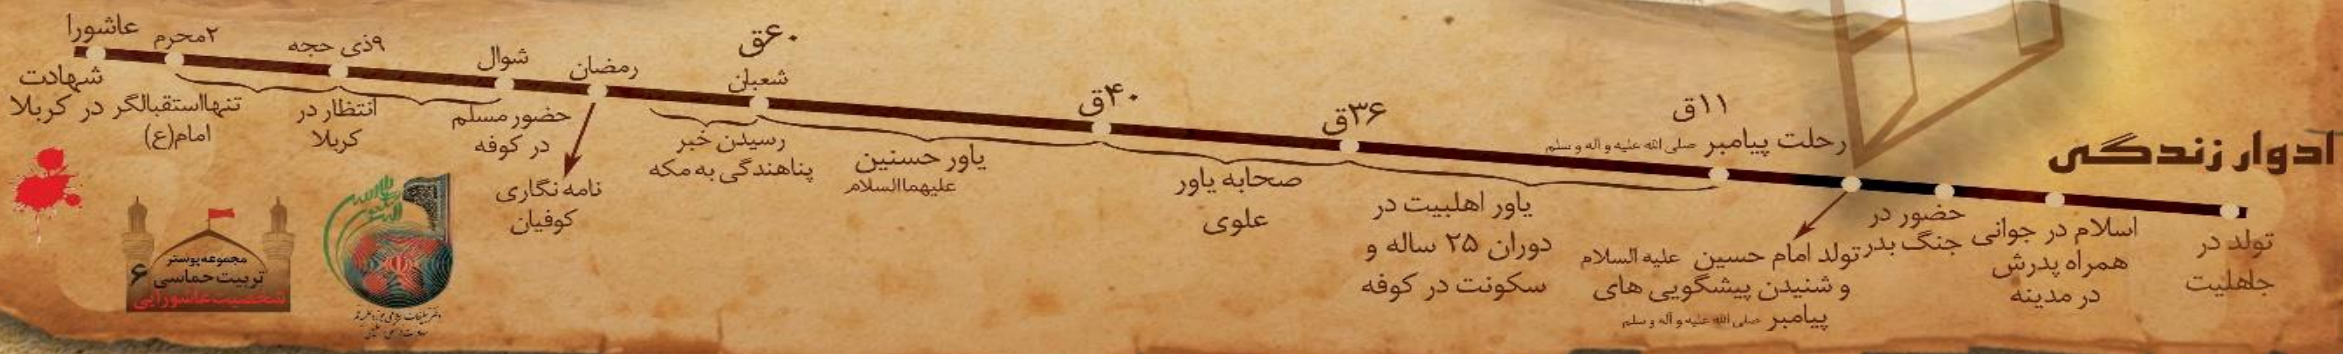 ادوار زندگی
تولد در
جاهلیت
اسلام در جوانی
همراه پدرش
در مدینه
حضور در
جنگ بدر
تولد امام حسین علیه السلام
و شنیدن پیشگویی های
پیامبر صلی الله علیه و آله و سلم
۱۱ق
رحلت پیامبر صلی الله علیه و آله و سلم
یاور اهلبیت در
دوران ۲۵ ساله و
سکونت در کوفه
۳۶ق
صحابه یاور
علوی
۴۰ق
یاور حسنین
علیهماالسلام
۶۰ق
شعبان
رسیدن خبر
پناهندگی به مکه
رمضان
نامه نگاری
کوفیان
شوال
حضور مسلم
در کوفه
۹ذی حجه
انتظار در
کربلا
۲محرم
تنهااستقبالگر
امام(ع)
عاشورا
شهادت
در کربلا
مجموعه پوستر
تربیت حماسی ۶
شخصیت عاشورایی